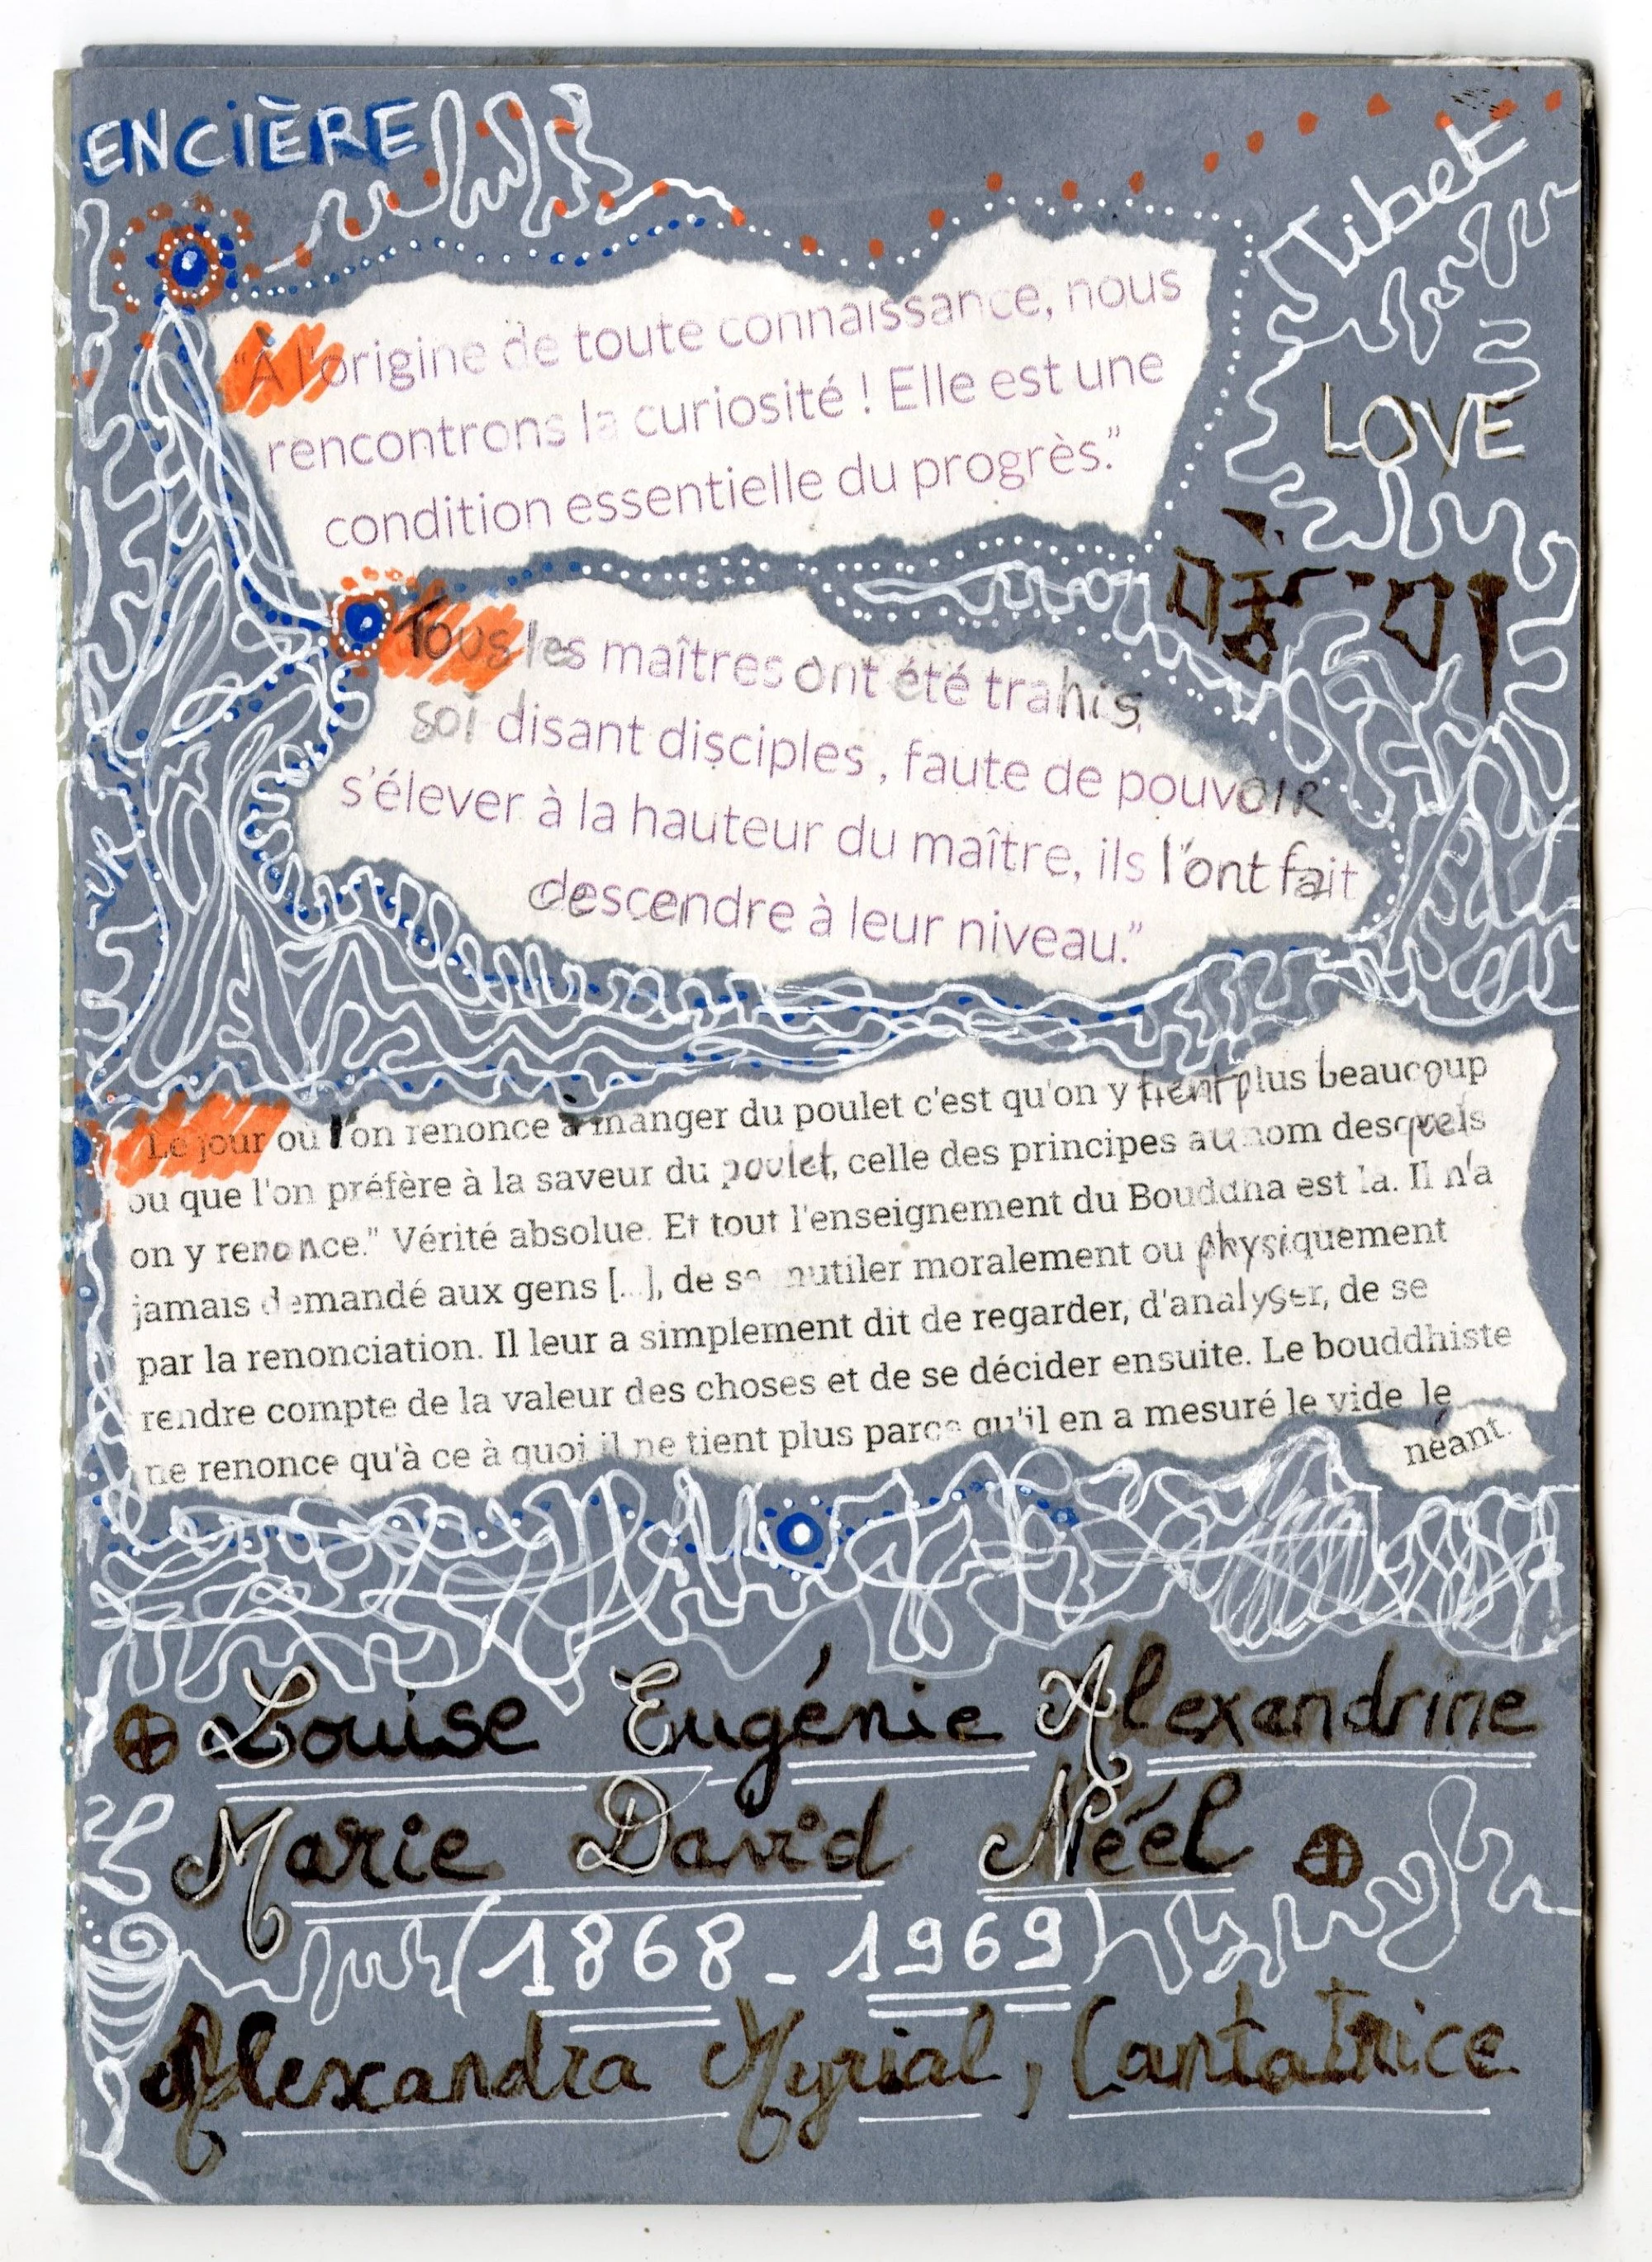 ENCIÈRE
Tibet
"À l'origine de toute connaissance, nous
rencontrons la curiosité ! Elle est une
condition essentielle du progrès."
LOVE
Tous les maîtres ont été trahis,
soi disant disciples , faute de pouvoir
s'élever à la hauteur du maître, ils l'ont fait
descendre à leur niveau."
UR
"Le jour où l'on renonce à manger du poulet c'est qu'on y tient plus beaucoup
ou que l'on préfère à la saveur du poulet, celle des principes au nom desquels
on y renonce." Vérité absolue. Et tout l'enseignement du Bouddha est la. Il n'a
jamais demandé aux gens [...], de se mutiler moralement ou physiquement
par la renonciation. Il leur a simplement dit de regarder, d'analyser, de se
rendre compte de la valeur des choses et de se décider ensuite. Le bouddhiste
ne renonce qu'à ce à quoi il ne tient plus parce qu'il en a mesuré le vide le
néant.
Louise Eugénie Alexandrine
Marie David Néél
(1868 - 1969)
Alexandra Myrial, Cantatrice